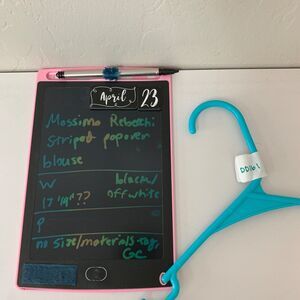 April 23
Massimo Rebecchi
striped popover
blouse
W black/
17 1/4"?? offwhite
P
no size/materials tag,
GC
DD161